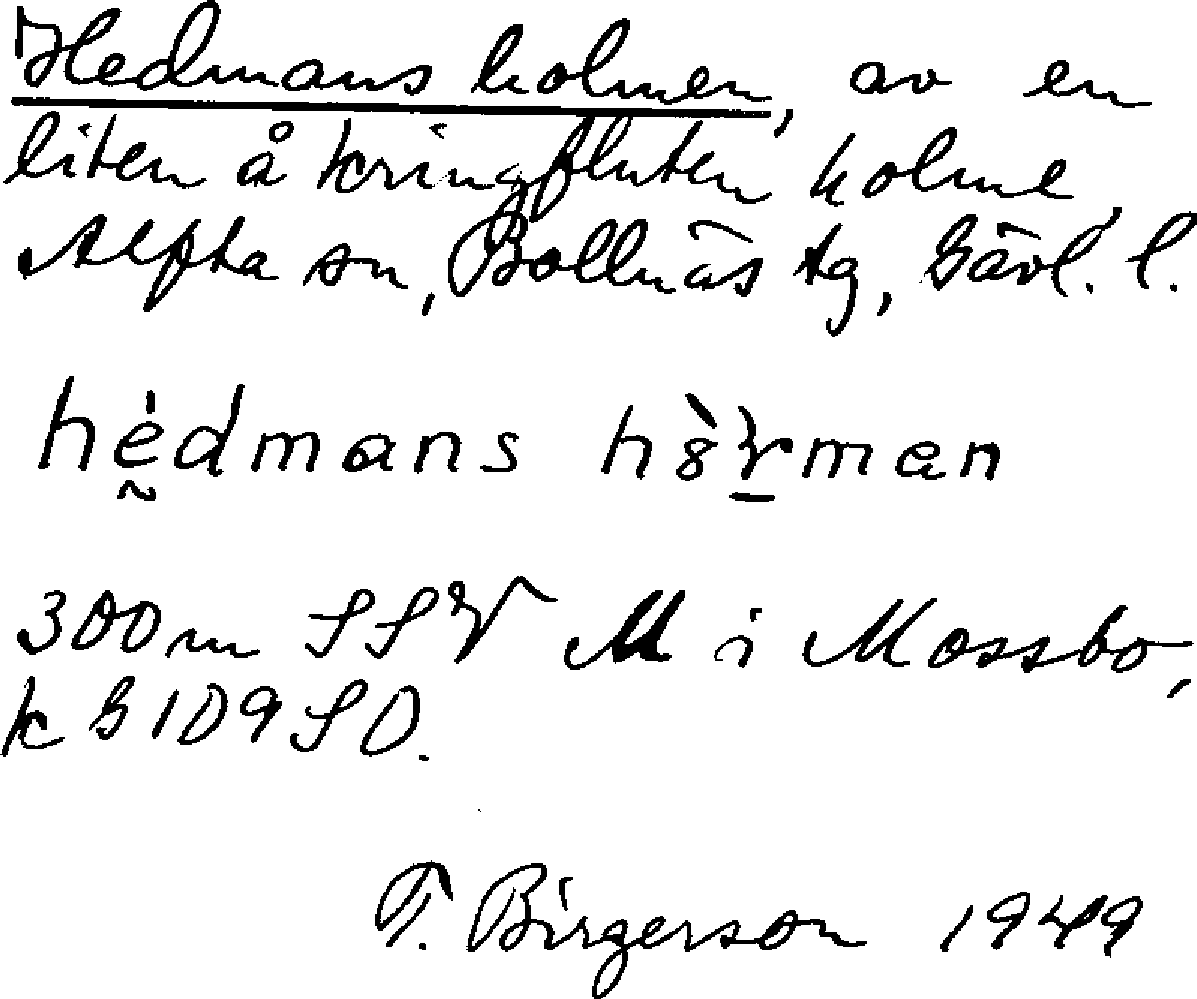 Hedmansholmen, av en
liten å kringfluten holme,
Alfta sn, Bollnäs tg, Gävl. l.
hèdmans
300m SSV M i Mossbo,
k G 109 SO.
T. Birgerson 1949